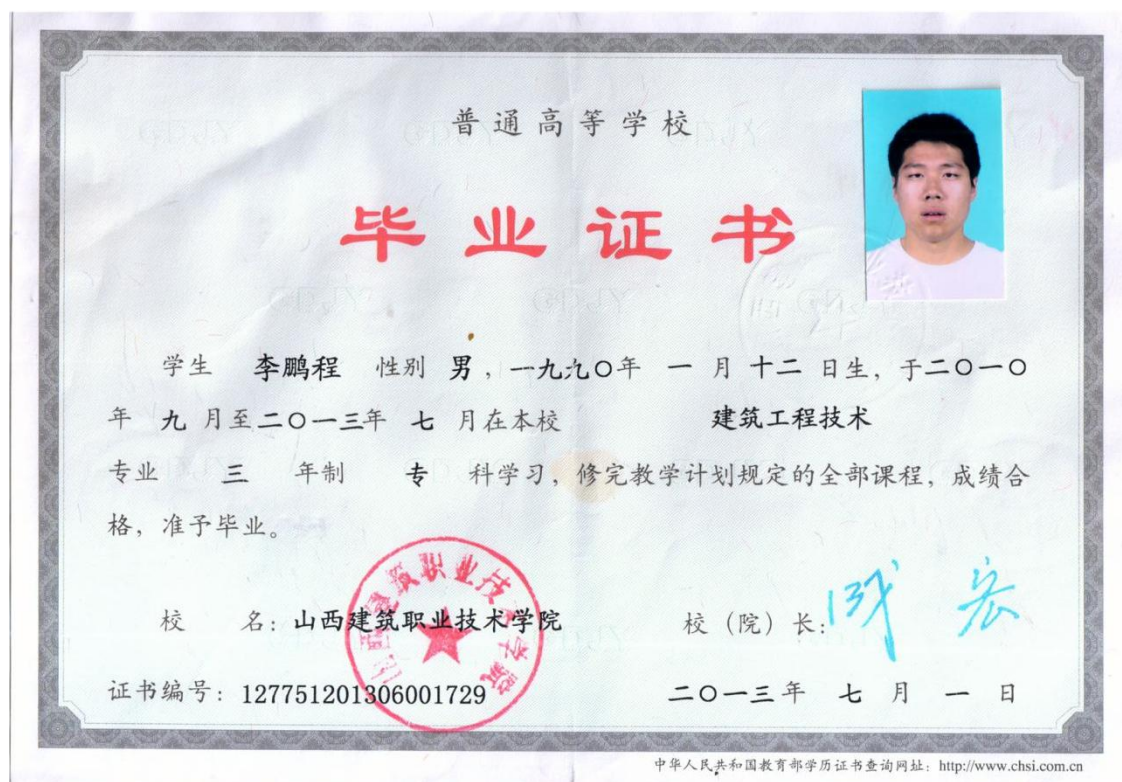 普通高等学校
毕业证书
学生 李鹏程 性别 男，一九九〇年 一 月 十二 日生，于二〇一〇
年 九 月至二〇一三年 七 月在本校 建筑工程技术
专业 三 年制 专 科学习，修完教学计划规定的全部课程，成绩合
格，准予毕业。
校 名：山西建筑职业技术学院
校（院）长：
证书编号：127751201306001729
二〇一三年 七 月 一 日
山西建筑职业技术学院
中华人民共和国教育部学历证书查询网址：http://www.chsi.com.cn